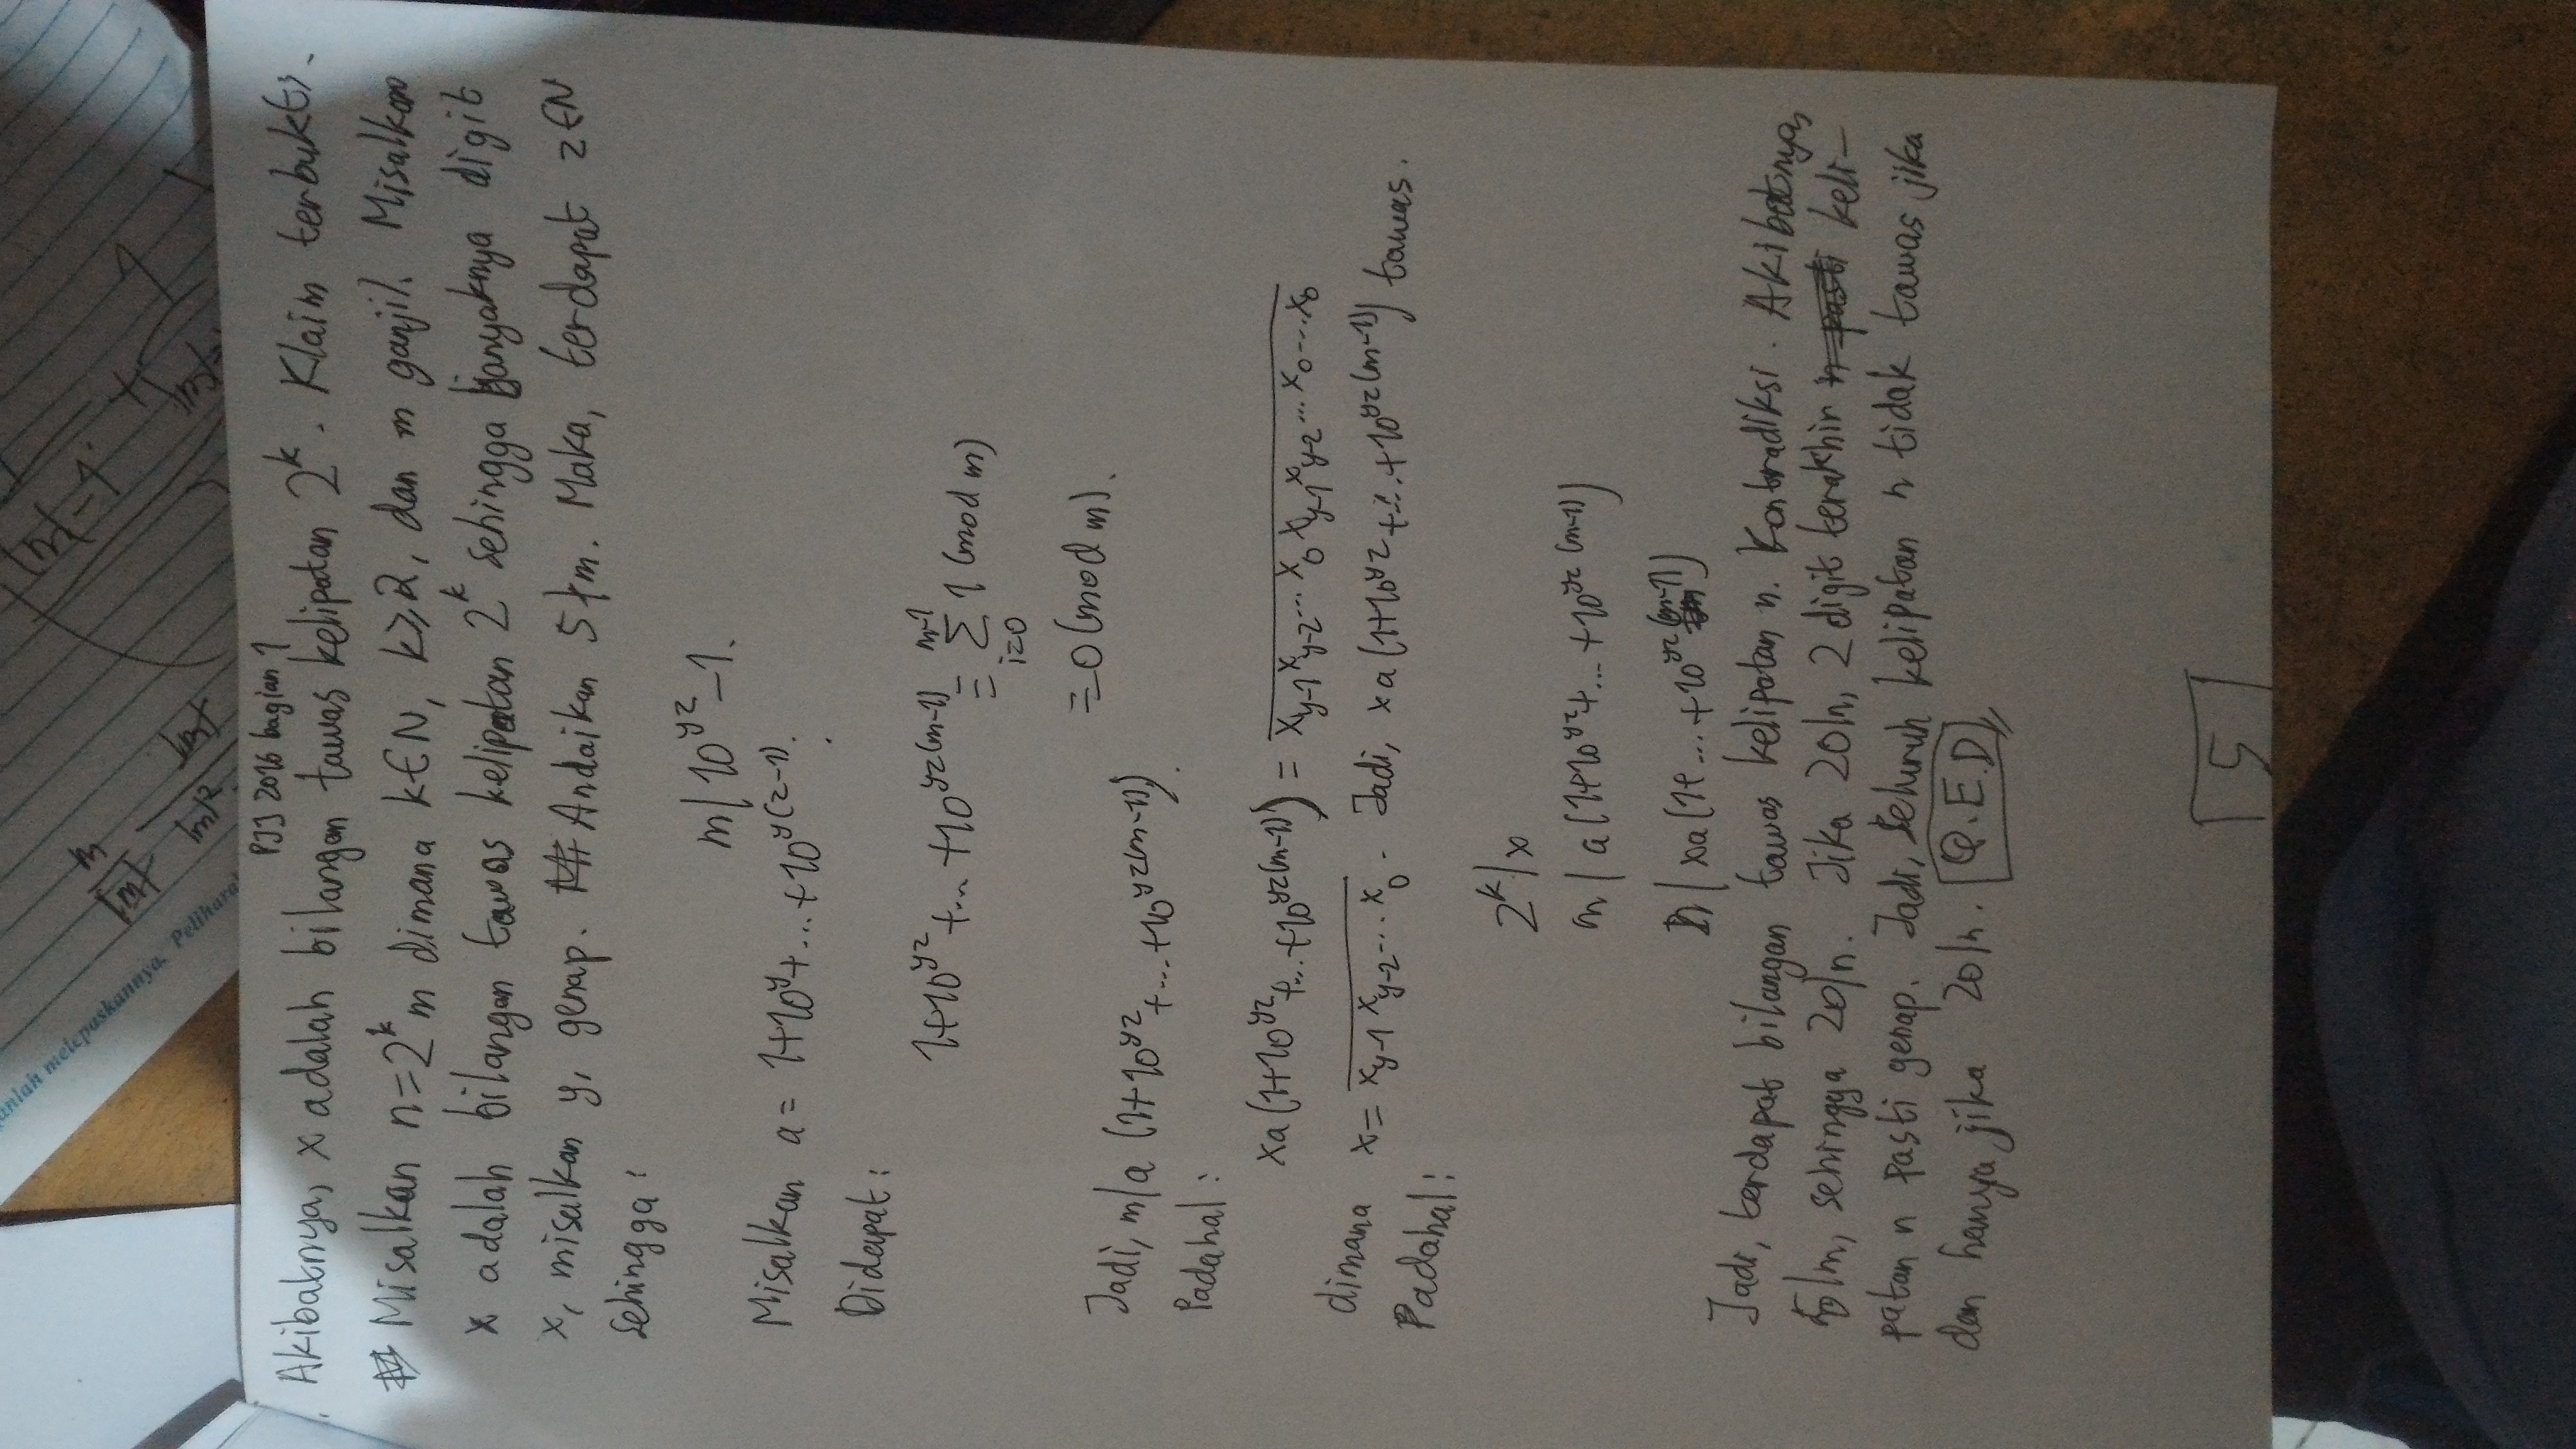 anlah melepaskannya. Pelihara
m
|m|
|m|²
|m|
|m| - 1
1
PJJ 2016 bagian 1
Akibatnya, x adalah bilangan tawas kelipatan 2^k. Klaim terbukti.
Misalkan n=2^k m dimana k∈N, k≥2, dan m ganjil. Misalkan
x adalah bilangan tawas kelipatan 2^k sehingga banyaknya digit
x, misalkan y, genap. Andaikan 5∤m. Maka, terdapat z∈N
sehingga:
m|10^{yz}-1.
Misalkan a= 1+10^y+...+10^{y(z-1)}.
Didapat:
1+10^{yz}+...+10^{yz(m-1)} ≡ Σ_{i=0}^{m-1} 1 (mod m)
≡0(mod m).
Jadi, m|a (1+10^{yz}+...+10^{yz(m-1)}).
Padahal:
xa(1+10^{yz}+...+10^{yz(m-1)}) = \overline{x_{y-1}x_{y-2}...x_0x_{y-1}x_{y-2}...x_0...x_0}
dimana x= \overline{x_{y-1}x_{y-2}...x_0}. Jadi, xa(1+10^{yz}+...+10^{yz(m-1)}) tawas.
Padahal:
2^k|x
m|a(1+10^{yz}+...+10^{yz(m-1)})
n|xa(1+...+10^{yz(m-1)})
Jadi, terdapat bilangan tawas kelipatan n. Kontradiksi. Akibatnya,
5|m, sehingga 20|n. Jika 20|n, 2 digit terakhir n pasti keli-
patan n pasti genap. Jadi, seluruh kelipatan n tidak tawas jika
dan hanya jika 20|n. Q.E.D
5